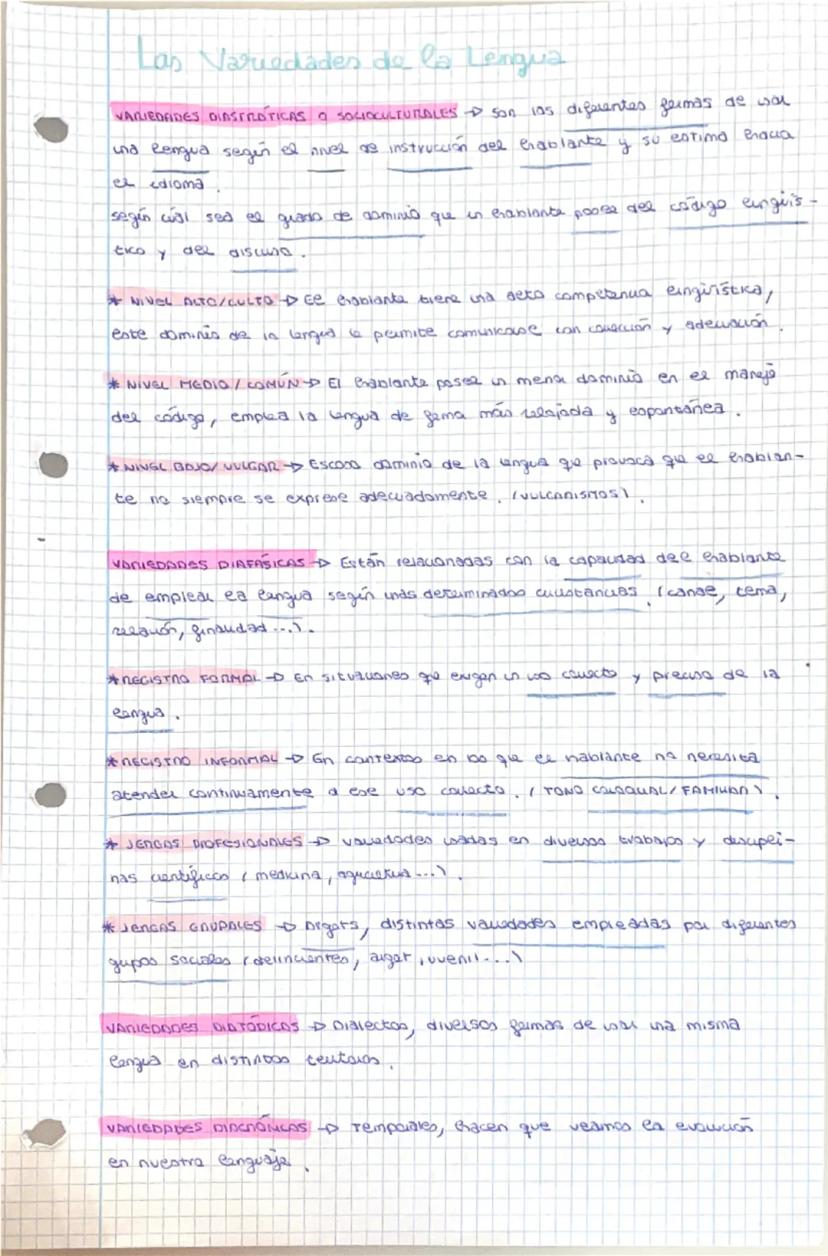 Las Variedades de la Lengua
VARIEDADES DIASTRÁTICAS O SOCIOCULTURALES → son las diferentes formas de usar
una lengua según el nivel de instrucción del hablante y su estima hacia
el idioma.
según cuál sea el grado de dominio que un hablante posea del código lingüís-
tico y del discurso.
* NIVEL ALTO/CULTO → El hablante tiene una alta competencia lingüística,
este dominio de la lengua le permite comunicarse con corrección y adecuación.
* NIVEL MEDIO/COMÚN → El hablante posee un menor dominio en el manejo
del código, emplea la lengua de forma más relajada y espontánea.
* NIVEL BAJO/VULGAR → Escaso dominio de la lengua que provoca que el hablan-
te no siempre se exprese adecuadamente. (VULGARISMOS).
VARIEDADES DIAFÁSICAS → Están relacionadas con la capacidad del hablante
de emplear la lengua según unas determinadas circunstancias. (canal, tema,
relación, finalidad...).
* REGISTRO FORMAL → En situaciones que exigen un uso correcto y preciso de la
lengua.
* REGISTRO INFORMAL → En contextos en los que el hablante no necesita
atender continuamente a ese uso correcto. (TONO COLOQUIAL/FAMILIAR).
* JERGAS PROFESIONALES → variedades usadas en diversos trabajos y discipli-
nas científicas (medicina, agricultura...).
* JERGAS GRUPALES → Argots, distintas variedades empleadas por diferentes
grupos sociales (delincuentes, argot juvenil...)
VARIEDADES DIATÓPICAS → Dialectos, diversas formas de usar una misma
lengua en distintos territorios.
VARIEDADES DIACRÓNICAS → Temporales, hacen que veamos la evolución
en nuestro lenguaje.